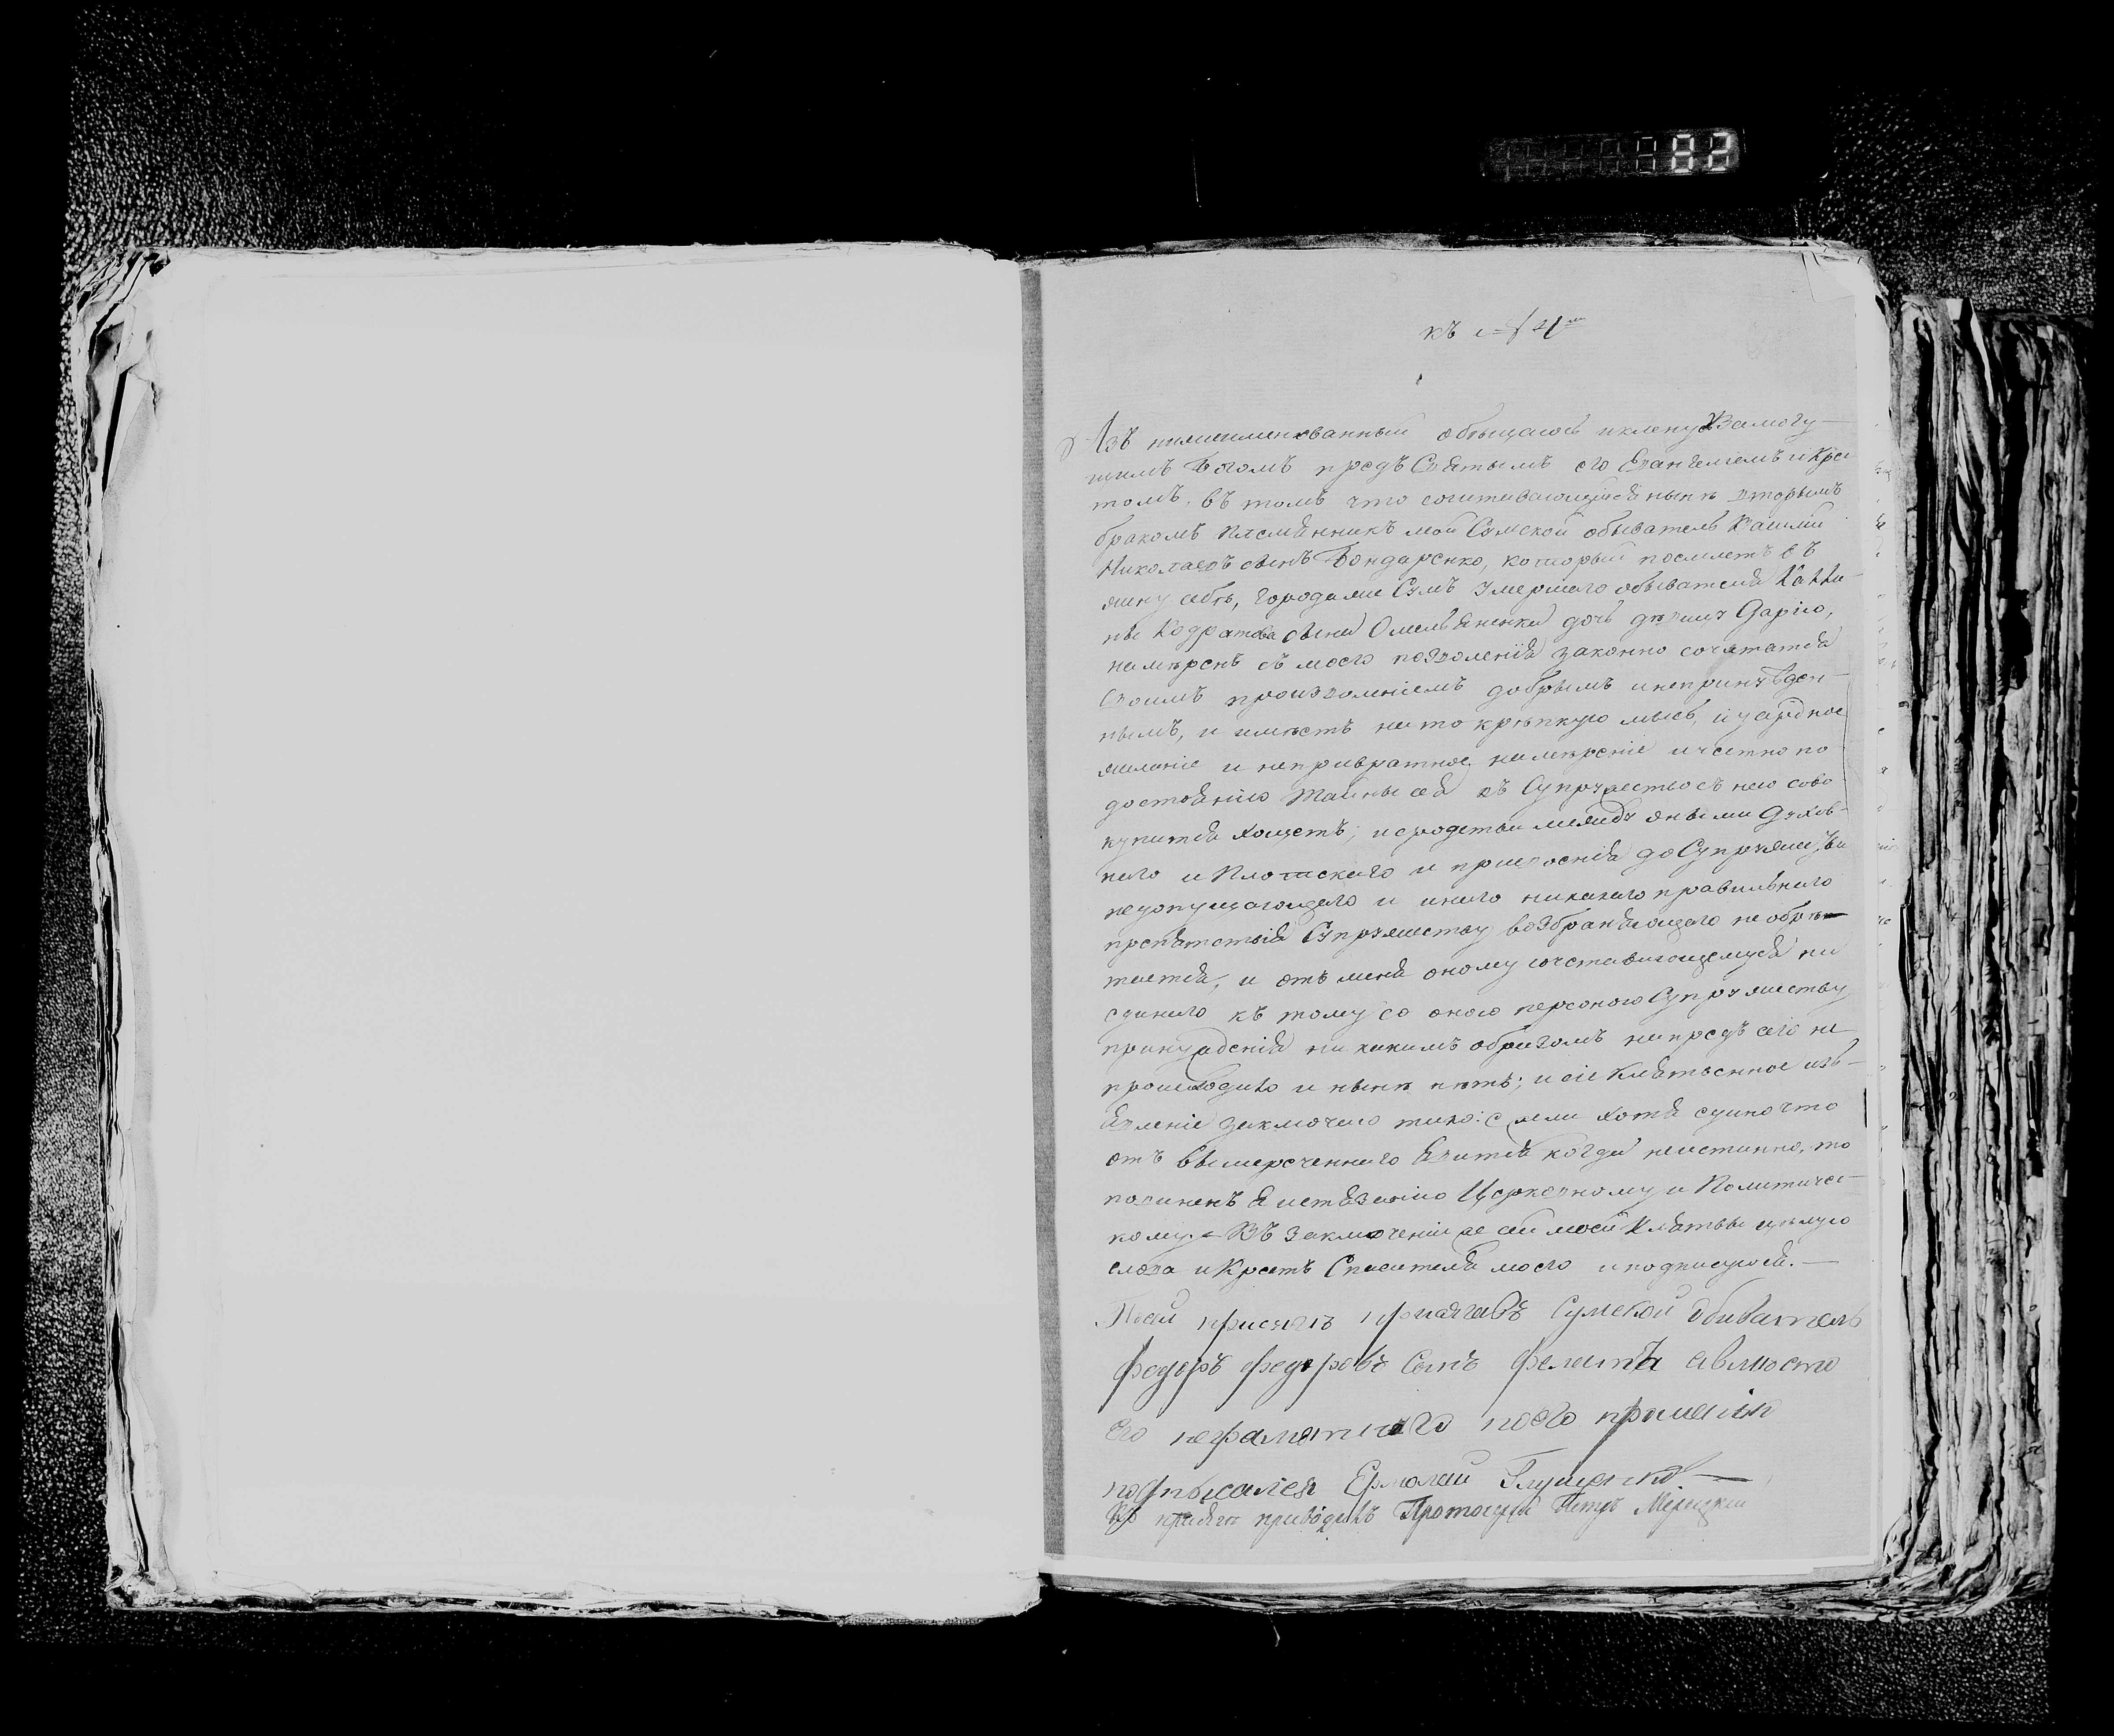 82
къ № 21му
Азъ нижеименованный обѣщаюсь и кленусь Всемогу-
щимъ Богомъ предъ Святымъ его Евангелiемъ и Крес
томъ, въ томъ что сочитавающiйся нынѣ вторымъ
бракомъ племянникъ мой Сумской обыватель Василiй
Николаевъ сынъ Бондаренко, который поемлетъ въ
жену себѣ, города же Сумъ умершаго обывателя
Кодратова сына Омельяненка дочь дѣвицу Дарiю,
намѣренъ съ моего позволенiя законно сочетатся
Своимъ произволенiемъ добрымъ и непринужден-
нымъ, и имѣетъ на то крѣпкую мысль, и усердное
желанiе и непривратное намѣренiе и честно по
достоянiю Тайны сея въ Супружество съ нею сово-
купится хощетъ; и сродства между оными Духов-
наго и Плотскаго и присвоенiя до Супружества
недопущающаго и инаго никакаго правильнаго
препятствiя Супружеству возбраняющаго не обрѣ-
тается, и отъ меня оному сочетавающемуся ни
единаго къ тому со оною персоною Супружеству
принужденiя никакимъ образомъ напредъ сего не
происходило и нынѣ нѣтъ; и сiе Клятвенное изъ-
явленiе заключаю тако: ежели хотя едино что
отъ вышереченнаго явится когда неистинно, то
повиненъ я истязанiю Церковному и Политичес-
кому. Въ заключенiи же сей моей Клятвы цѣлую
слова и Крестъ Спасителя моего и подписуюся.
По сей присягѣ присягавъ Сумской обиватель
Федоръ Федоровъ Сынъ а вмюсто
Его неграмотнаго по его прошенiю
подписался Ермолай Глущенко
Къ присягѣ приводилъ Протоiерей Петръ